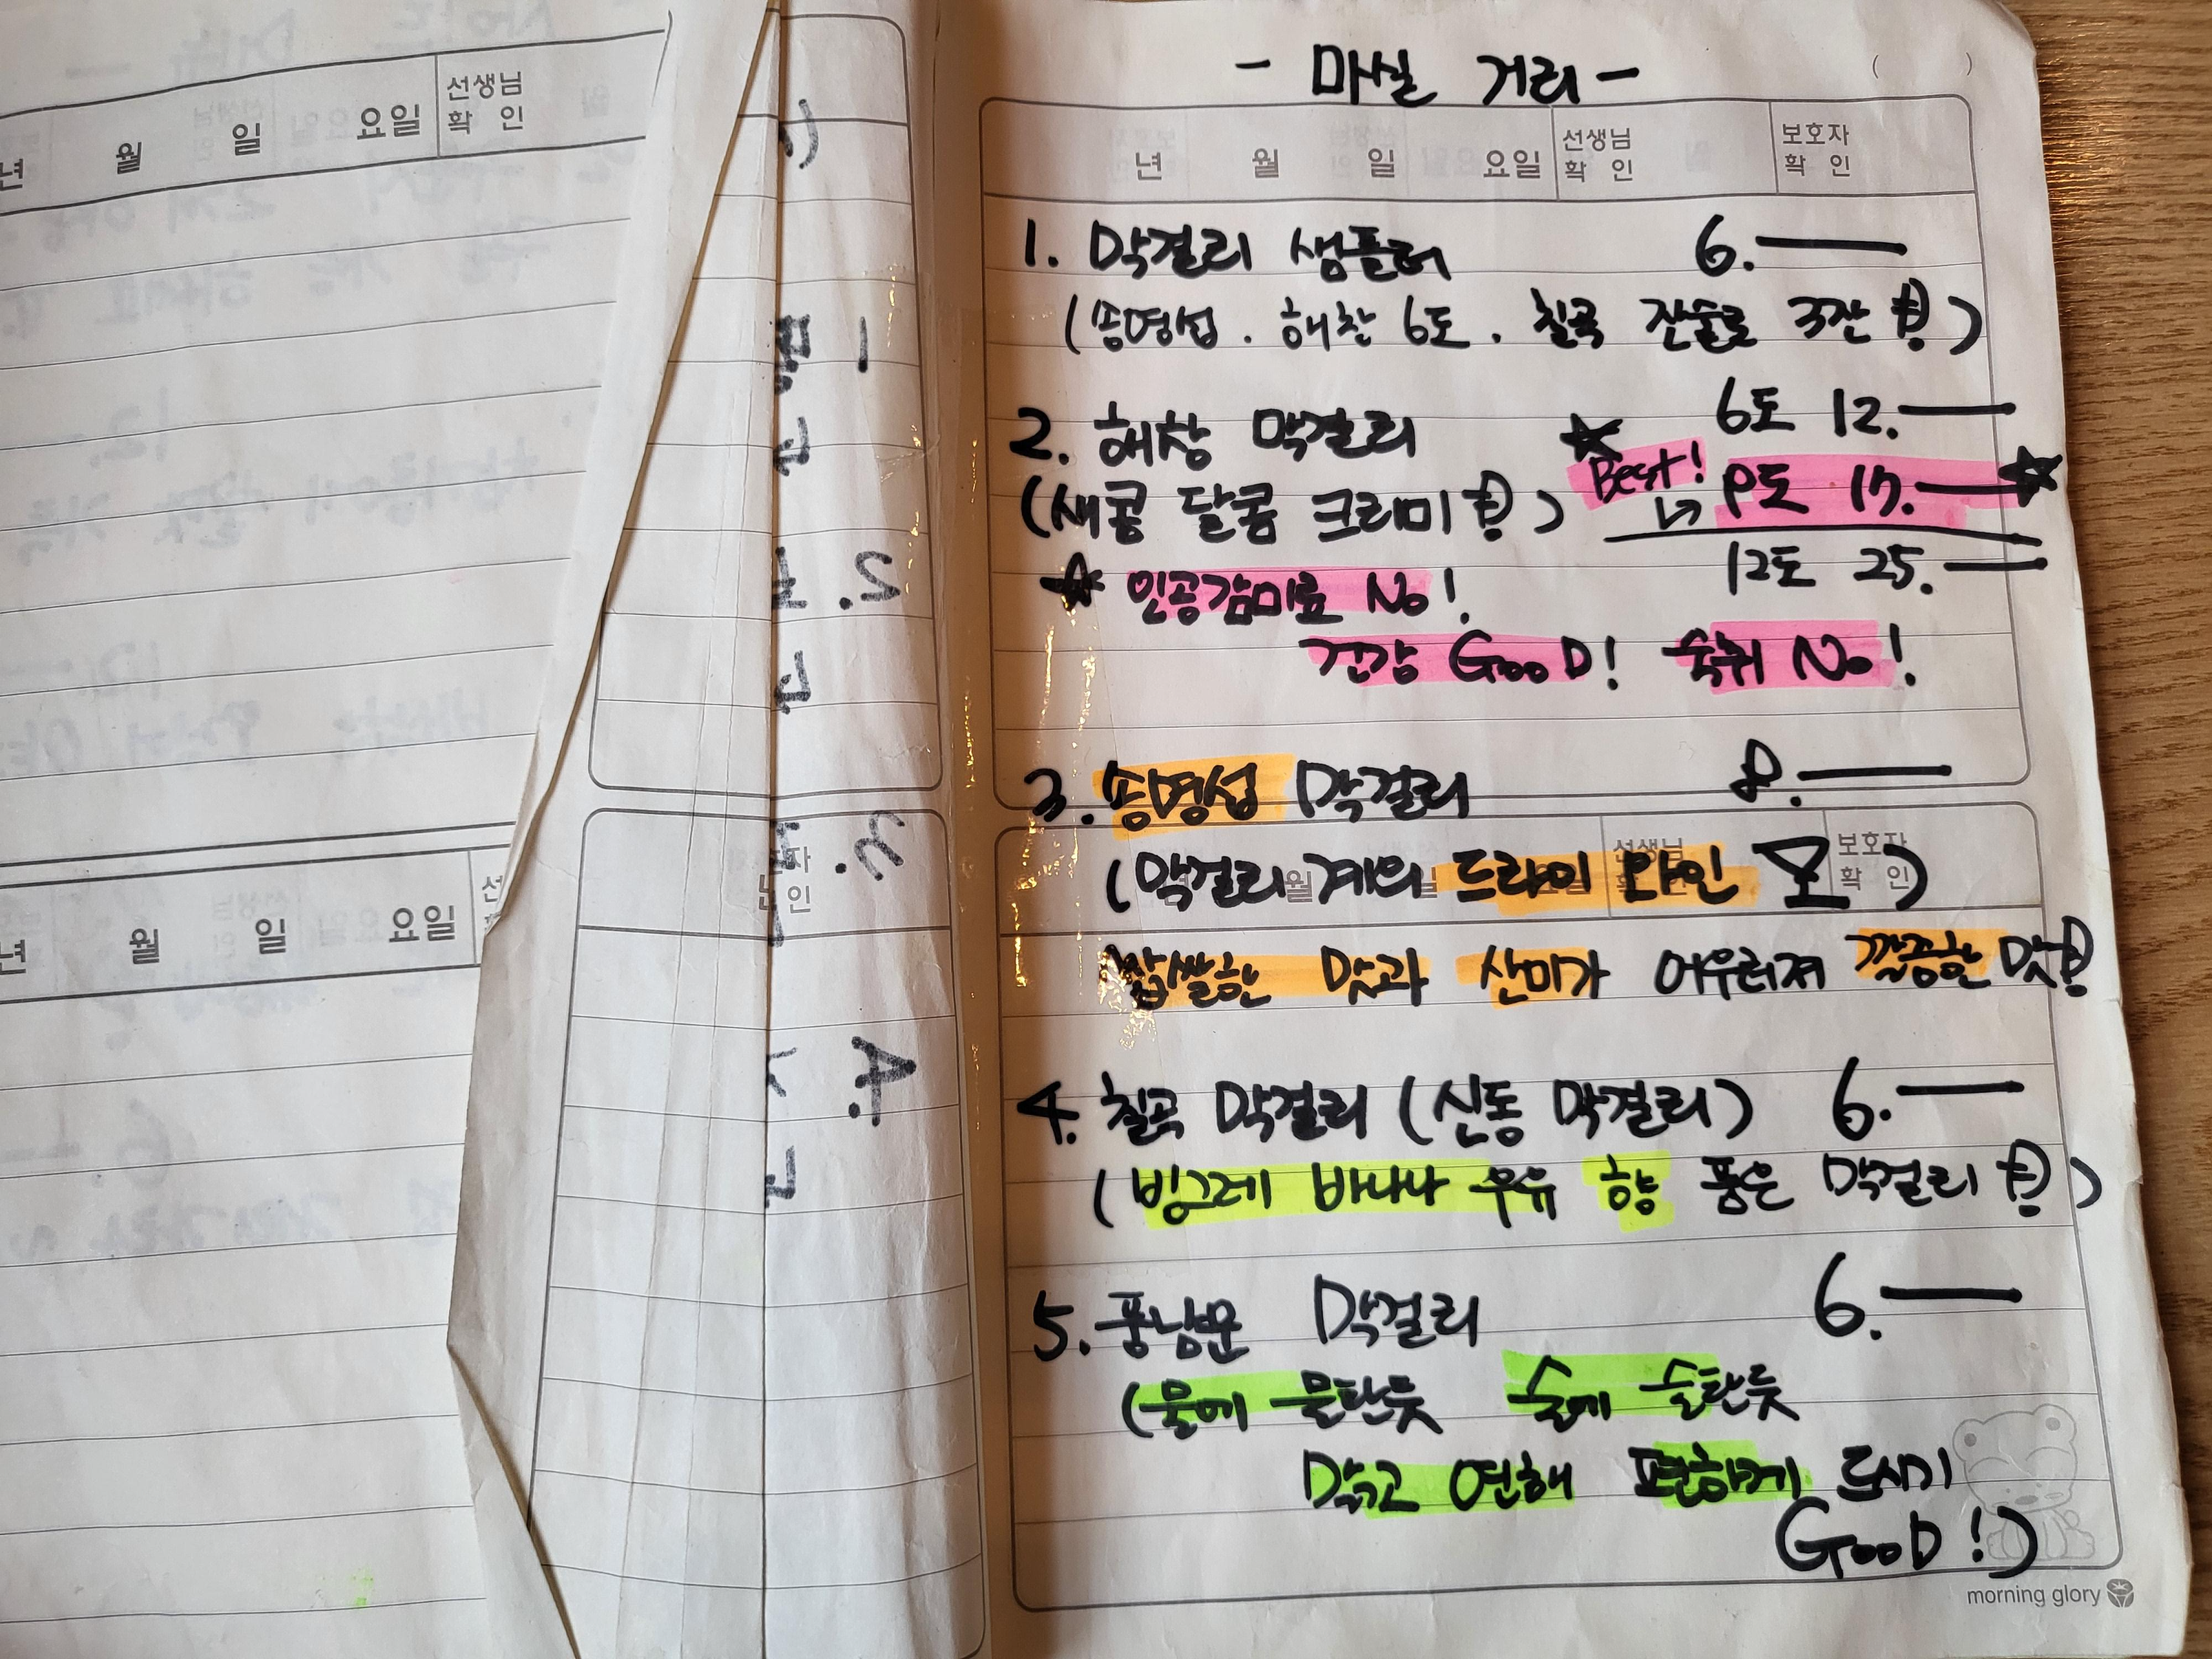 - 마실 거리 -
년 월 일 요일 선생님 확인 보호자 확인
1. 막걸리 샘플러 6.—
(송명섭 . 해창 6도 . 칠곡 잔술로 3잔 !)
2. 해창 막걸리 6도 12.—
(새콤 달콤 크리미 !) Best! 9도 17.—
12도 25.—
인공감미료 No!
건강 GooD! 숙취 No!
3. 송명섭 막걸리 8.—
(막걸리계의 드라이 와인)
년 월 일 요일 선생님 확인 보호자 확인
쌉쌀한 맛과 산미가 어우러져 깔끔한 맛!
4. 칠곡 막걸리 (신동 막걸리) 6.—
(빙그레 바나나 우유 향 품은 막걸리 !)
5. 풍남문 막걸리 6.—
(물에 물탄듯 술에 술탄듯
맑고 연해 편하게 드시기
GooD!)
morning glory
년 월 일 요일 선생님 확인
년 월 일 요일